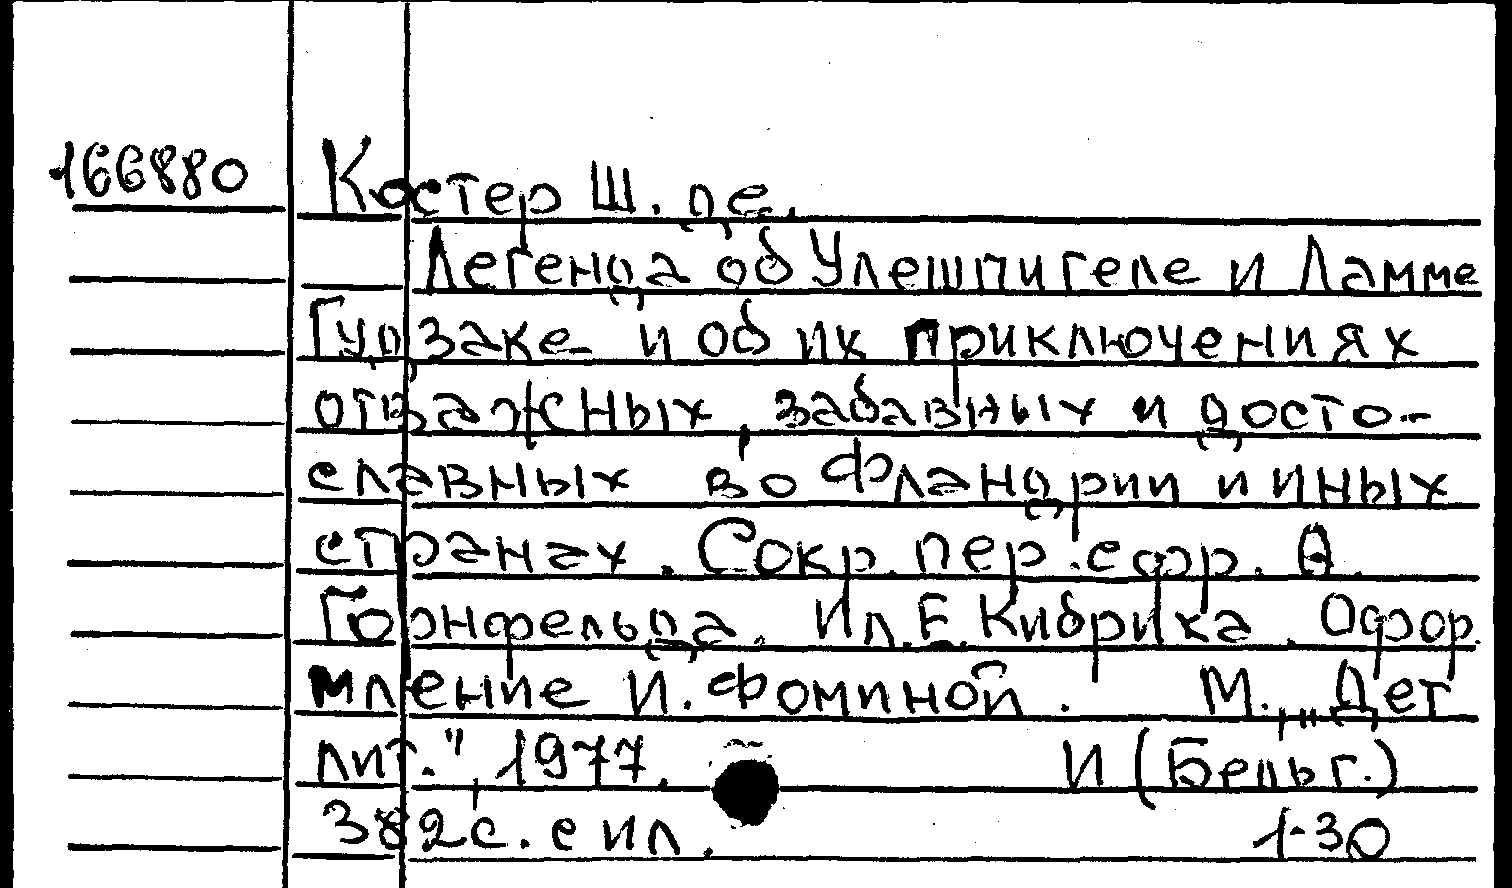 166880 Костер Ш. де.
Легенда об Улешпигеле и Ламме
Гудзаке и об их приключениях
отважных, забавных и досто-
славных во Фландрии и иных
странах. Сокр. пер. с фр. А.
Горнфельда. Ил. Е. Кибрика. Офор
мление И. Фоминой. М., „Дет
лит.", 1977. И (Бельг.)
382с. с ил. 1-30